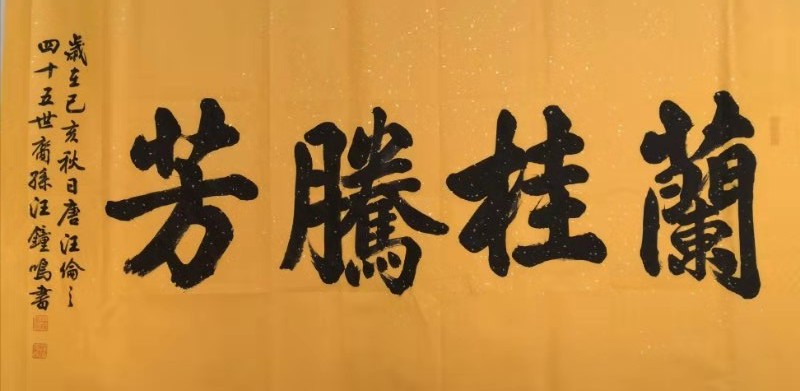 蘭桂騰芳
歲在己亥秋日唐汪倫之
四十五世裔孫汪鐘鳴書